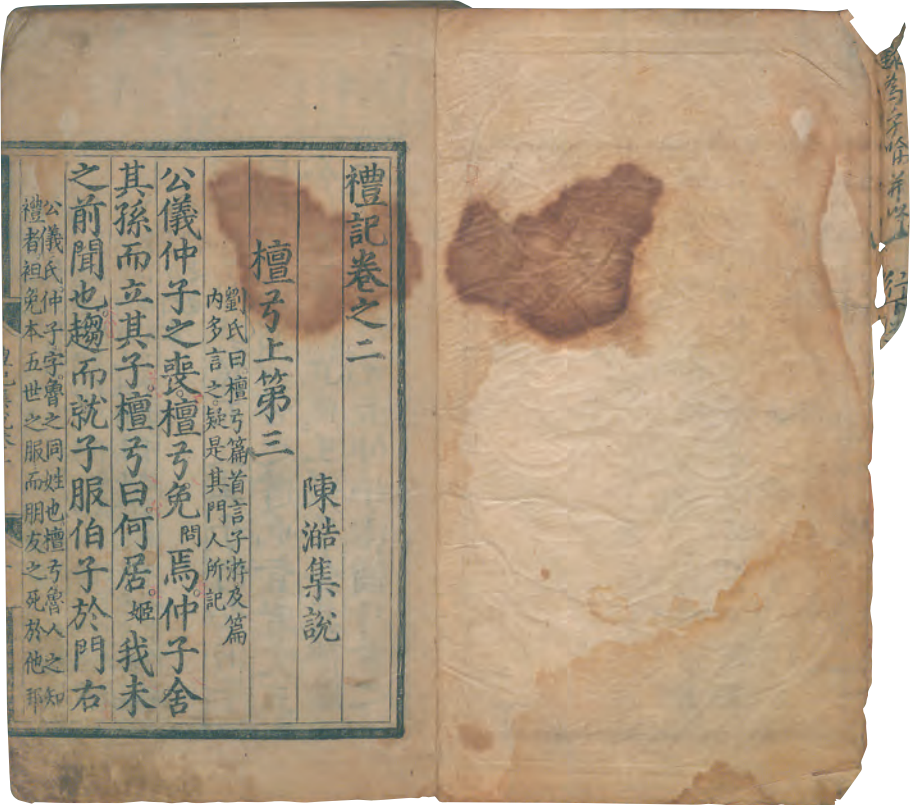 禮記卷之二
陳澔集說
檀弓上第三
劉氏曰檀弓篇首言子游及篇
内多言之疑是其門人所記
公儀仲子之喪檀弓免問焉仲子舍
其孫而立其子檀弓曰何居姬我未
之前聞也趨而就子服伯子於門右
公儀氏仲子字魯之同姓也檀弓魯人之知
禮者袒免本五世之服而朋友之死於他邦